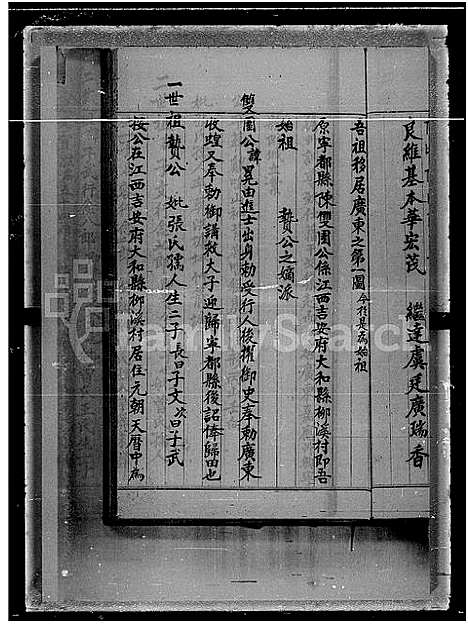 良維基本華宏茂 繼達虞廷廣瑞香
吾祖移居廣東之第一圖 今於是為始祖
原寧都縣陳雙園公係江西吉安府大和縣柳溪村即吾
始祖 贄公之嫡派
雙園公諱昆由進士出身勅受行人後擢御史奉勅廣東
收蝗又奉勅御講救大子迎歸寧都縣後詔俸歸田也
一世祖贄公 妣張氏孺人生二子長曰子文次曰子武
按公在江西吉安府大和縣柳溪村居住元朝天曆中為
FamilySearch